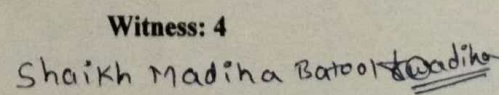 Witness: 4
Shaikh Madiha Batool